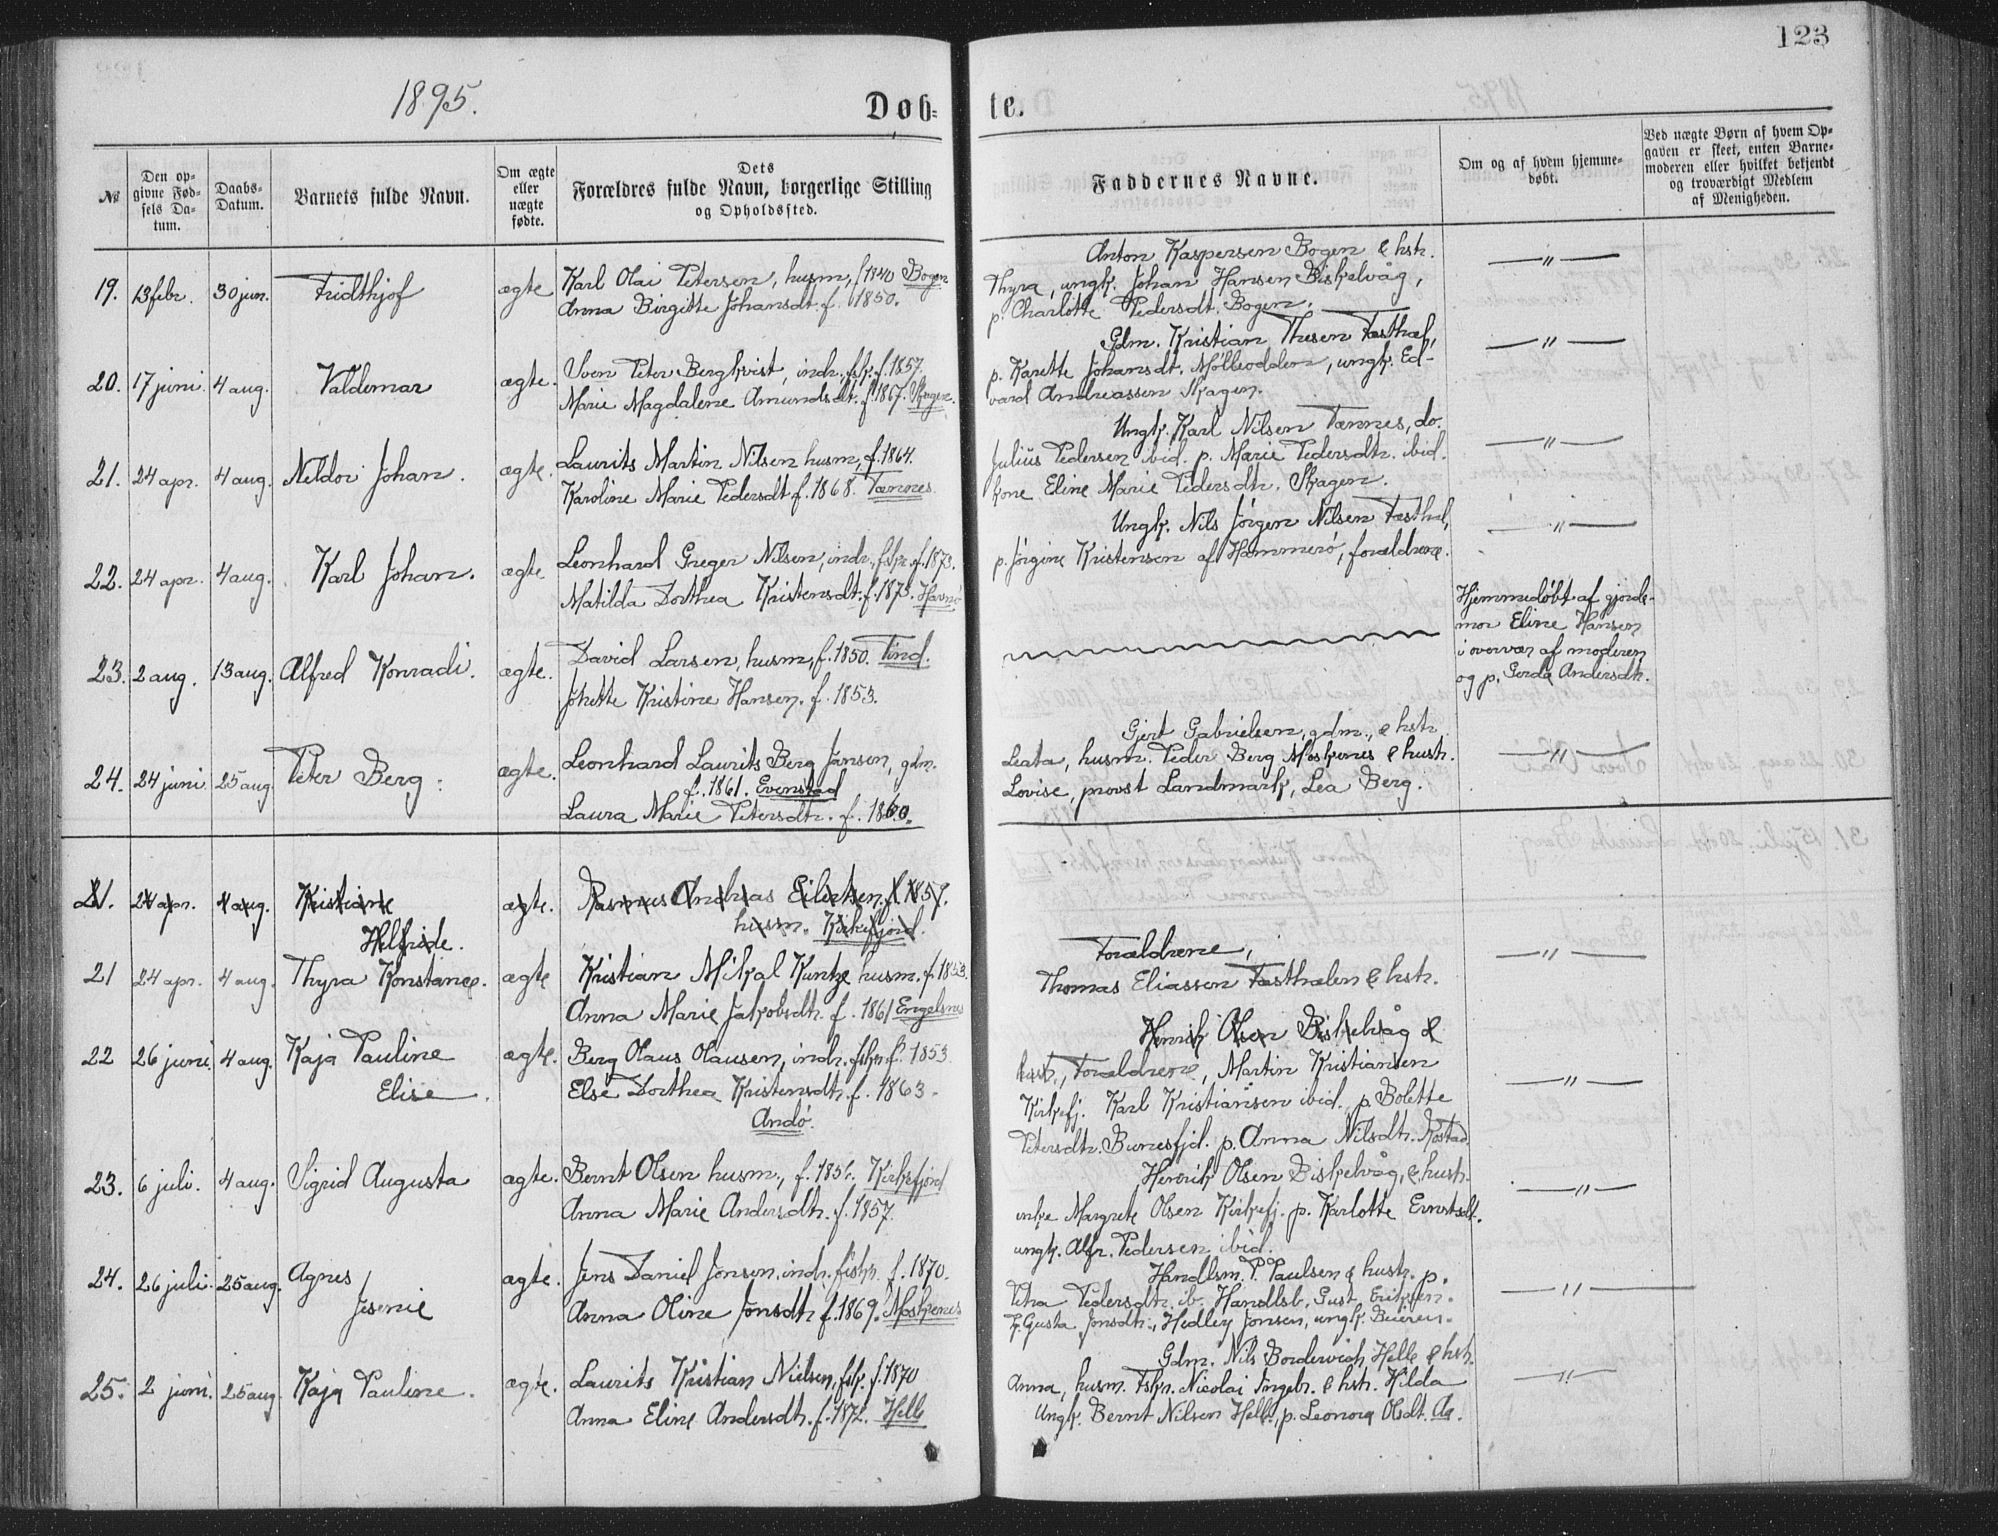 123
1895.
Døb-
te.
№
Den op-
givne Fød-
sels Da-
tum.
Daabs-
Datum.
Barnets fulde Navn.
Om ægte
eller
uægte
fødte.
Dets
Forældres fulde Navn, borgerlige Stilling
og Opholdssted.
Faddernes Navne.
Om og af hvem hjemme-
døbt.
Ved uægte Børn af hvem Op-
gaven er skeet, enten Barne-
moderen eller hvilket bekjendt
og troværdigt Medlem
af Menigheden.
19. 13 febr. 30 jun. Fridthjof ægte
Karl Olai Petersen, husm, f 1840 Bogen
Anna Birgitte Johansdt. f. 1850.
Anton Kaspersen Bogen & hstr.
Thyra, ungk. Johan Hansen Biskelvåg,
p. Charlotte Pedersdt. Bogen.
— " —
20. 17 juni 4 aug. Valdemar ægte.
Sven Peter Bergkvist, indr. fsk. f. 1857.
Marie Magdalene Amundsdt. f 1867. Skagen.
Gdm. Kristian Thesen Tæsthæl,
p. Karette Johansdt. Mølleodden, ungk. Ed-
vard Andreassen Skagen.
— " —
21. 24 apr. 4 aug. Neldor Johan. ægte.
Laurits Martin Nilsen husm, f. 1864.
Karoline Marie Pedersdt f. 1868. Tennes
Ungk. Karl Nilsen Tennes, do.
Julius Pedersen ibid. p. Marie Pedersdtr. ibid.
kone Eline Marie Pedersdtr. Skagen.
— " —
22. 24 apr. 4 aug. Karl Johan. ægte
Leonhard Greger Nilsen, indr., fskr. f. 1873.
Matilda Dorthea Kristensdt. f. 1873. Havnø
Ungk. Nils Jörgen Nilsen Tæsthæl,
p. Jörgine Kristensen af Hammerö, forældrene.
— " —
23. 2 aug. 13 aug. Alfred Konradi. ægte.
David Larsen, husm, f. 1850. Tind.
Johette Kristine Hansen. f. 1853.
Hjemmedøbt af gjorde-
mor Eline Hansen
i overvær af moderen
og p. Gerda Andersdtr.
24. 24 juni 25 aug. Peter Berg. ægte.
Leonhard Laurits Berg Jansen, gdm.
f. 1861. Evenstad
Laura Marie Petersdtr. f. 1860.
Gjert Gabrielsen, gdm., & hstr.
Leata, husm. Peder Berg Moskenes & hustr.
Lovise, provst Landmark, Lea Berg.
— " —
21. 24 apr. 4 aug. Kristiane ægte.
Helfride.
Rasmus Andreas Eilertsen f. 1857.
husm. Kirkefjord.
21 24 apr. 4 aug. Thyra Konstance. ægte
Kristian Mikal Kuntze husm. f. 1853.
Anna Marie Jakobsdtr. f. 1861 Engelsnes
Forældrene,
Thomas Eliassen Tæsthælen & hstr.
— " —
22 26 juni 4 aug. Kaja Pauline ægte.
Elise.
Berg Olaus Olausen, indr. fskr. f. 1853
Else Dorthea Kristensdtr. f. 1863.
Andö.
Henrik Olsen Biskelvåg &
hustr., Forældrene, Martin Kristiansen
Kirkefj. Karl Kristiansen ibid. p. Bolette
Petersdtr. Bunesfjd. p. Anna Nilsdtr. Kostad.
— " —
23. 6 juli. 4 aug. Sigrid Augusta ægte.
Bernt Olsen husm., f. 1856. Kirkefjord
Anna Marie Andersdtr. f. 1857.
Henrik Olsen Biskelvåg, & hustr.
enke Margrete Olsen Kirkefj. p. Karlotte Ernstsdt.
ungk. Alfr. Pedersen ibid.
— " —
24. 26 juli. 25 aug. Agnes ægte.
Jsenie
Jens Daniel Jonsen, indr. fiskr. f. 1870.
Anna Oline Jonsdtr f. 1869. Moskenes
Handlsm. P. Paulsen & hustr. p.
Petra Pedersdtr. ib. Handlsb. Gust. Eriksen.
k. Gusta Jonsdtr., Hedley Jonsen, ungk. Beieren.
— " —
25. 2 juni. 25 aug. Kaja Pauline. ægte.
Laurits Kristian Nielsen, fsk. f. 1870
Anna Eline Andersdtr. f. 1872. Helle
Gdm. Nils Bordervich Helle & hstr.
Anna, husm. Fskr. Nicolai Ingebr. & hstr. Hilda
Ungk. Bernt Nilsen Helle, p. Leonora Olsdt. Aa.
— " —